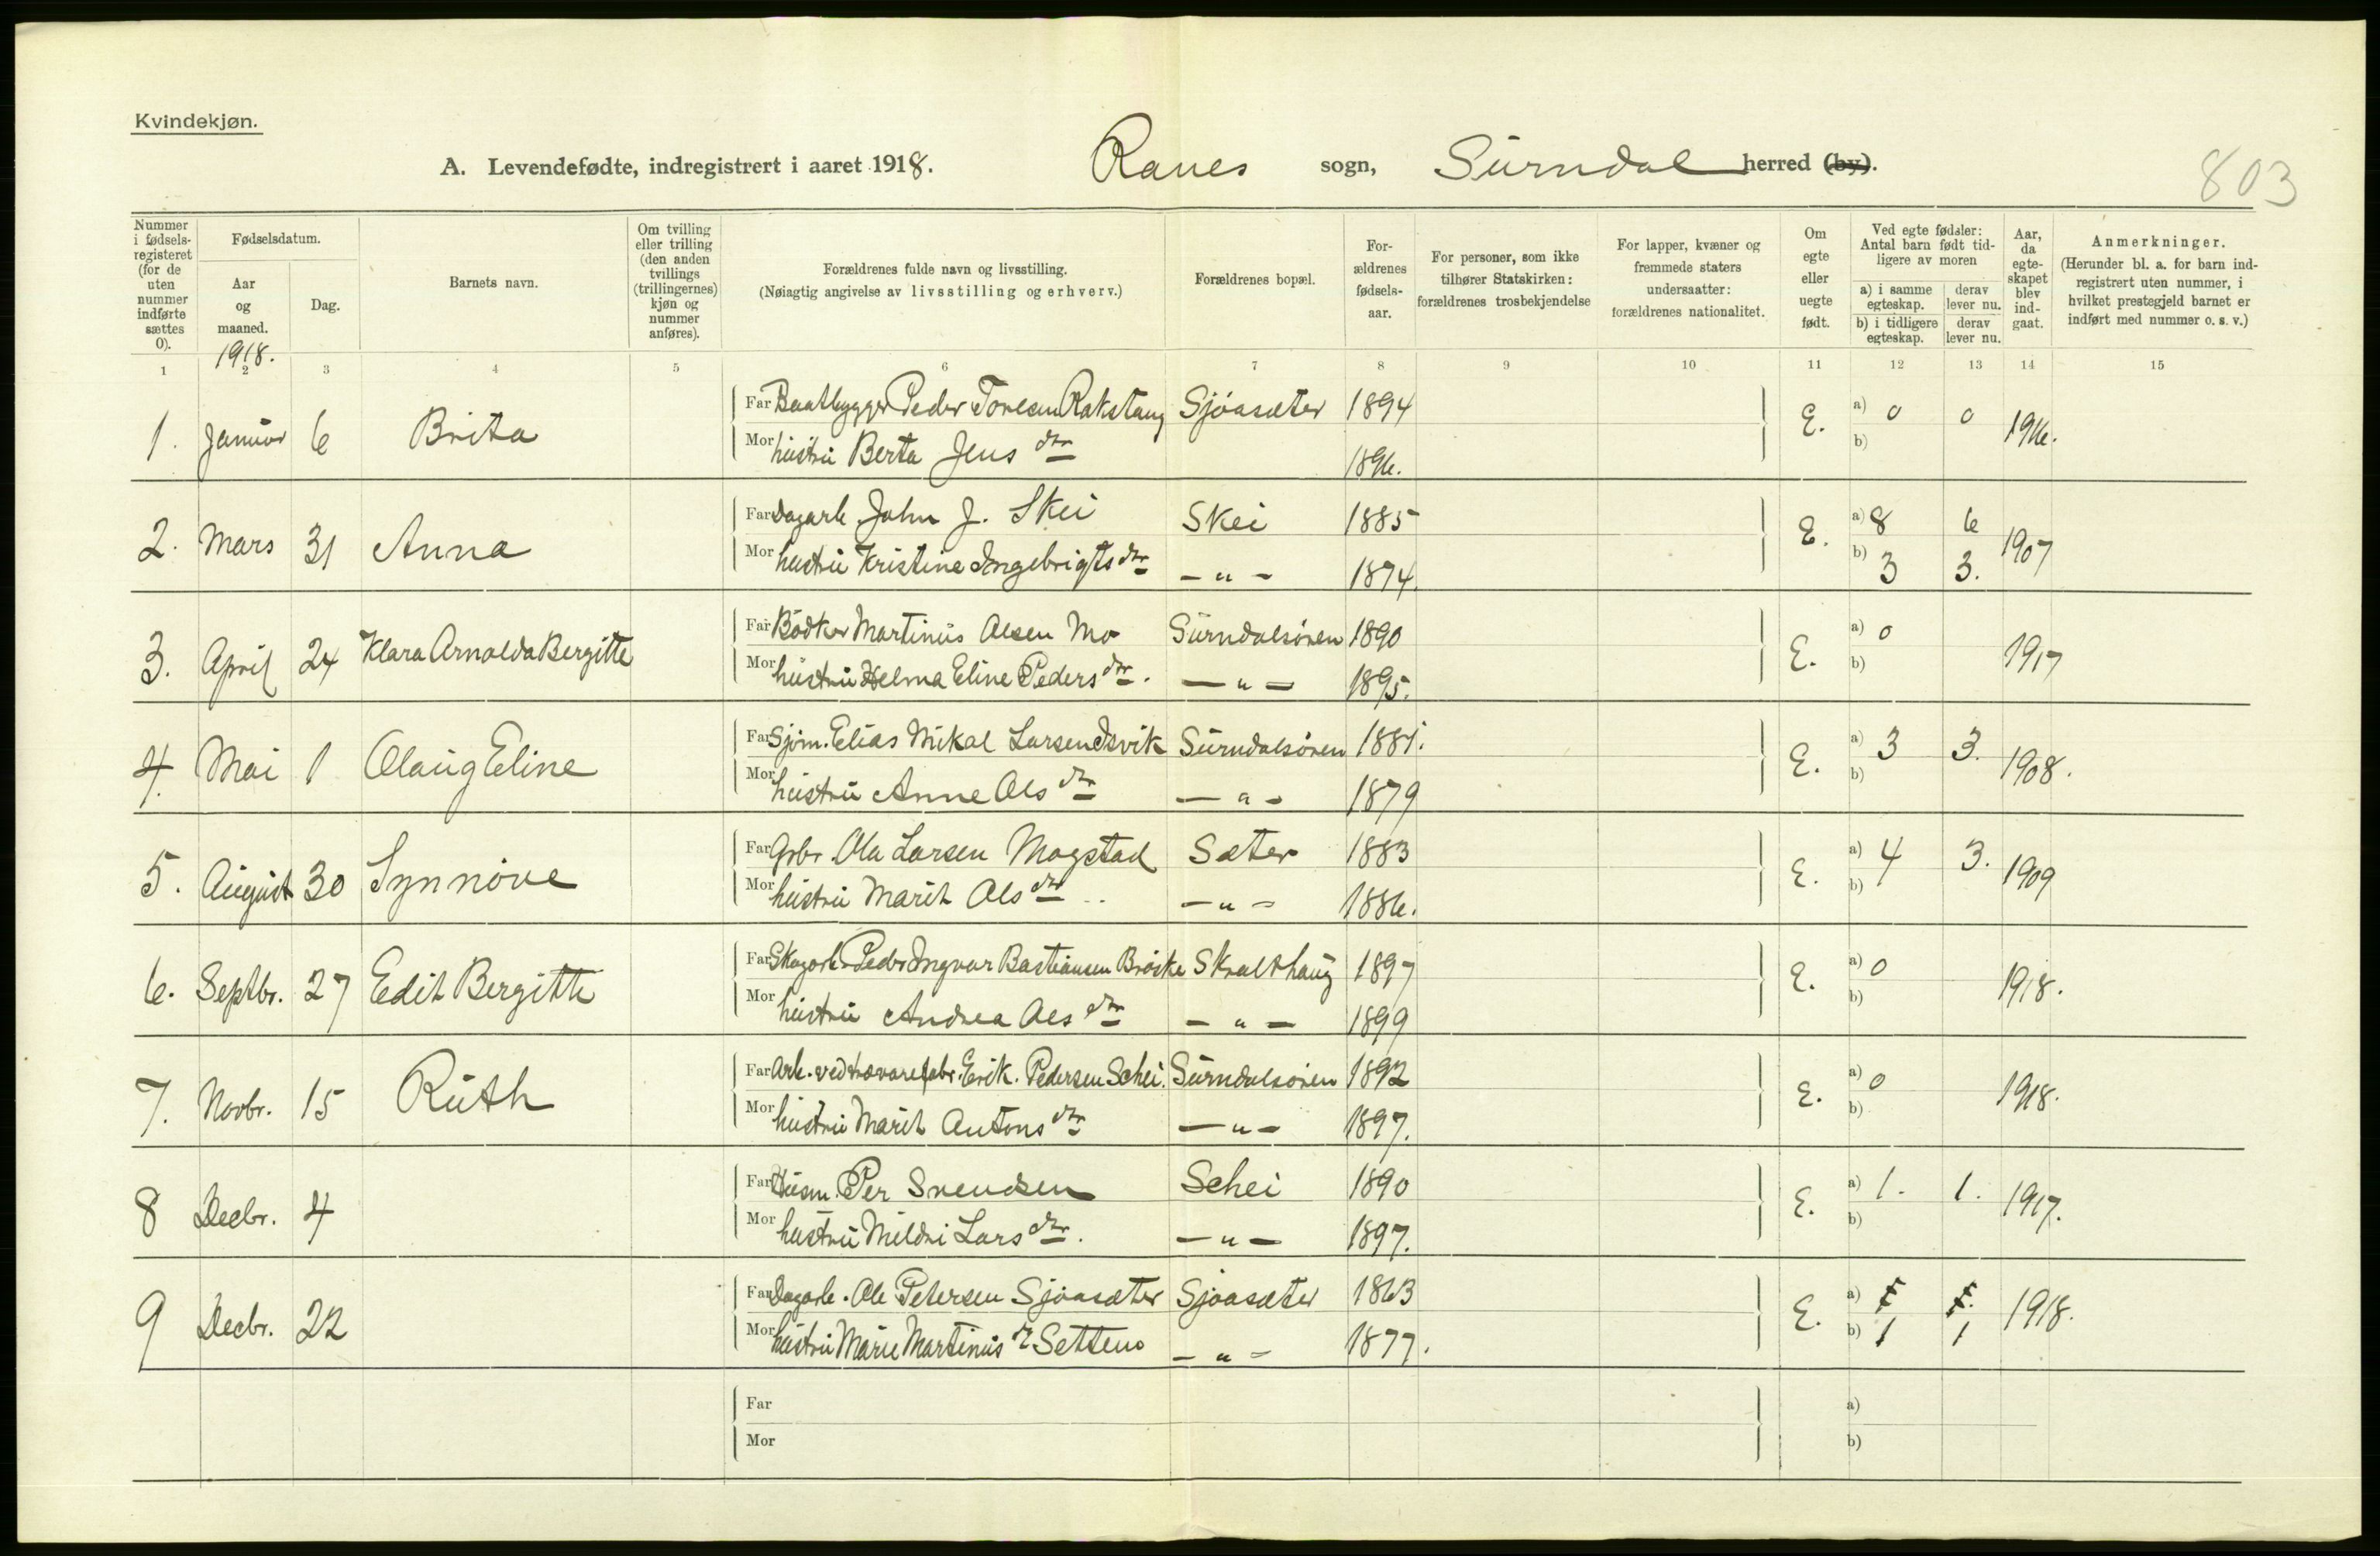 Kvindekjøn.
A. Levendefødte, indregistrert i aaret 1918. Ranes sogn, Surndal herred (by).
803
Nummer i fødsels-registeret (for de uten nummer indførte sættes 0).
Fødselsdatum.
Aar og maaned.
Dag.
Barnets navn.
Om tvilling eller trilling (den anden tvillings (trillingernes) kjøn og nummer anføres).
Forældrenes fulde navn og livsstilling.
(Nøiagtig angivelse av livsstilling og erhverv.)
Forældrenes bopæl.
For-ældrenes fødsels-aar.
For personer, som ikke tilhører Statskirken: forældrenes trosbekjendelse
For lapper, kvæner og fremmede staters undersaatter: forældrenes nationalitet.
Om egte eller uegte født.
Ved egte fødsler: Antal barn født tid-ligere av moren
a) i samme egteskap. derav lever nu.
b) i tidligere egteskap. derav lever nu.
Aar, da egte-skapet blev ind-gaat.
Anmerkninger.
(Herunder bl. a. for barn ind-registrert uten nummer, i hvilket prestegjeld barnet er indført med nummer o. s. v.)
1918.
1 2 3 4 5 6 7 8 9 10 11 12 13 14 15
1. Januar 6 Brita Far Baatbygger Peder Toresen Rakstang Sjøasæter 1894 E. a) 0 0 1916.
Mor hustru Berta Jens dtr 1896. b)
2. Mars 31 Anna Far Dagarb. John J. Skei Skei 1885 E. a) 8 6 1907
Mor hustru Kristine Ingebrigts dtr — " — 1874. b) 3 3.
3. April 24 Klara Arnolda Bergitte Far Bødker Martinus Olsen Mo Surndalsøren 1890 E. a) 0 1917
Mor hustru Helma Eline Peders dtr. — " — 1895. b)
4. Mai 1 Olaug Eline Far Sjøm. Elias Mikal Larsen Isvik Surndalsøren 1881. E. a) 3 3. 1908.
Mor hustru Anne Ols dtr — " — 1879 b)
5. August 30 Synnøve Far Grbr. Ola Larsen Mogstad Sæter 1883 E. a) 4 3. 1909
Mor hustru Marit Ols dtr — " — 1886. b)
6. Septbr. 27 Edit Bergitte Far Skogarb. Peder Ingvar Bastiansen Brøske Skralthaug 1897 E. a) 0 1918.
Mor hustru Andrea Ols dtr — " — 1899 b)
7. Novbr. 15 Ruth Far Arb. ved trævarefabr. Erik. Pedersen Schei. Surndalsøren 1892 E. a) 0 1918.
Mor hustru Marit Antons dtr — " — 1897. b)
8 Decbr. 4 Far Husm. Per Svendsen Schei 1890 E. a) 1. 1. 1917.
Mor hustru Mildri Lars dtr. — " — 1897. b)
9 Decbr. 22 Far Dagarb. Ole Petersen Sjøasæter Sjøasæter 1863 E. a) 1918.
Mor hustru Marie Martinus dr Settem — " — 1877. b) 1 1
Far a)
Mor b)